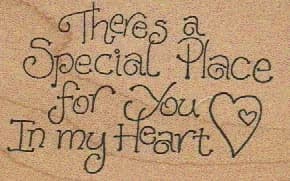 There's a
Special Place
for You
In my Heart